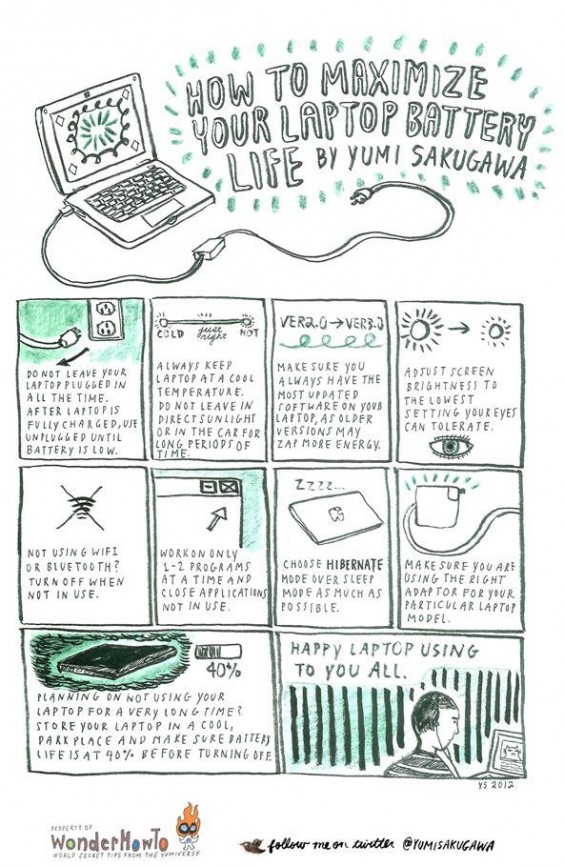 HOW TO MAXIMIZE
YOUR LAPTOP BATTERY
LIFE BY YUMI SAKUGAWA
DO NOT LEAVE YOUR
LAPTOP PLUGGED IN
ALL THE TIME.
AFTER LAPTOP IS
FULLY CHARGED, USE
UNPLUGGED UNTIL
BATTERY IS LOW.
COLD just right HOT
ALWAYS KEEP
LAPTOP AT A COOL
TEMPERATURE.
DO NOT LEAVE IN
DIRECT SUNLIGHT
OR IN THE CAR FOR
LONG PERIODS OF
TIME.
VER2.0 → VER3.0
MAKE SURE YOU
ALWAYS HAVE THE
MOST UPDATED
SOFTWARE ON YOUR
LAPTOP, AS OLDER
VERSIONS MAY
ZAP MORE ENERGY.
ADJUST SCREEN
BRIGHTNESS TO
THE LOWEST
SETTING YOUR EYES
CAN TOLERATE.
NOT USING WIFI
OR BLUETOOTH?
TURN OFF WHEN
NOT IN USE.
WORK ON ONLY
1-2 PROGRAMS
AT A TIME AND
CLOSE APPLICATIONS
NOT IN USE.
ZZZZ...
CHOOSE HIBERNATE
MODE OVER SLEEP
MODE AS MUCH AS
POSSIBLE.
MAKE SURE YOU ARE
USING THE RIGHT
ADAPTOR FOR YOUR
PARTICULAR LAPTOP
MODEL.
40%
PLANNING ON NOT USING YOUR
LAPTOP FOR A VERY LONG TIME?
STORE YOUR LAPTOP IN A COOL,
DARK PLACE AND MAKE SURE BATTERY
LIFE IS AT 40% BEFORE TURNING OFF.
HAPPY LAPTOP USING
TO YOU ALL.
YS 2012
PROPERTY OF
WonderHowTo
WORLD SECRET TIPS FROM THE YUMIVERSE
follow me on twitter @YUMISAKUGAWA